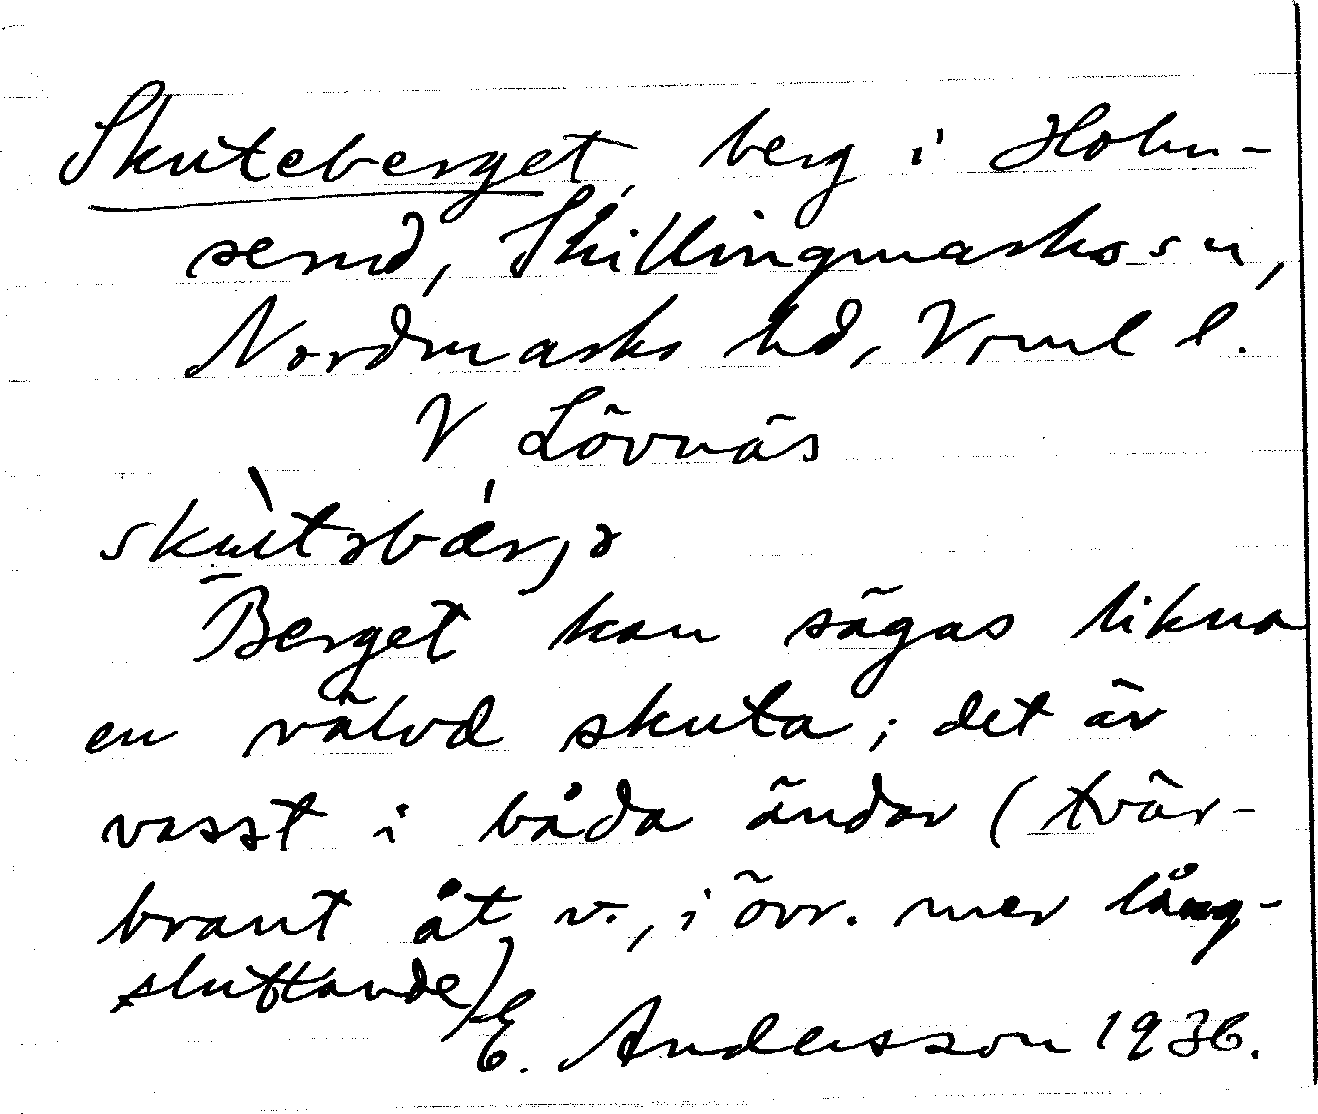 Skuteberget, berg i Holm-
serud, Skillingmarks sn,
Nordmarks hd, Vrml l.
V Lövnäs
Berget kan sägas likna
en välvd skuta; det är
vasst i båda ändar (tvär-
brant åt v., i övr. mer lång-
sluttande) E. Andersson 1936.